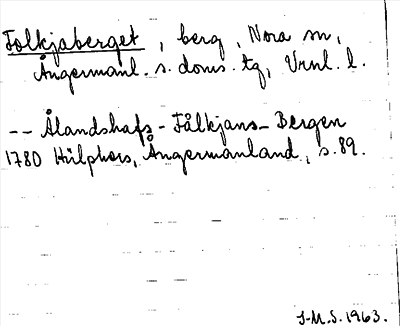 Folkjaberget, berg, Nora sn,
Ångermanl. s. doms. tg, Vrnl. l.
-- Ålandshafs - Fålkjans - Bergen
1780 Hülphers, Ångermanland, s. 89.
J-M.S. 1963.